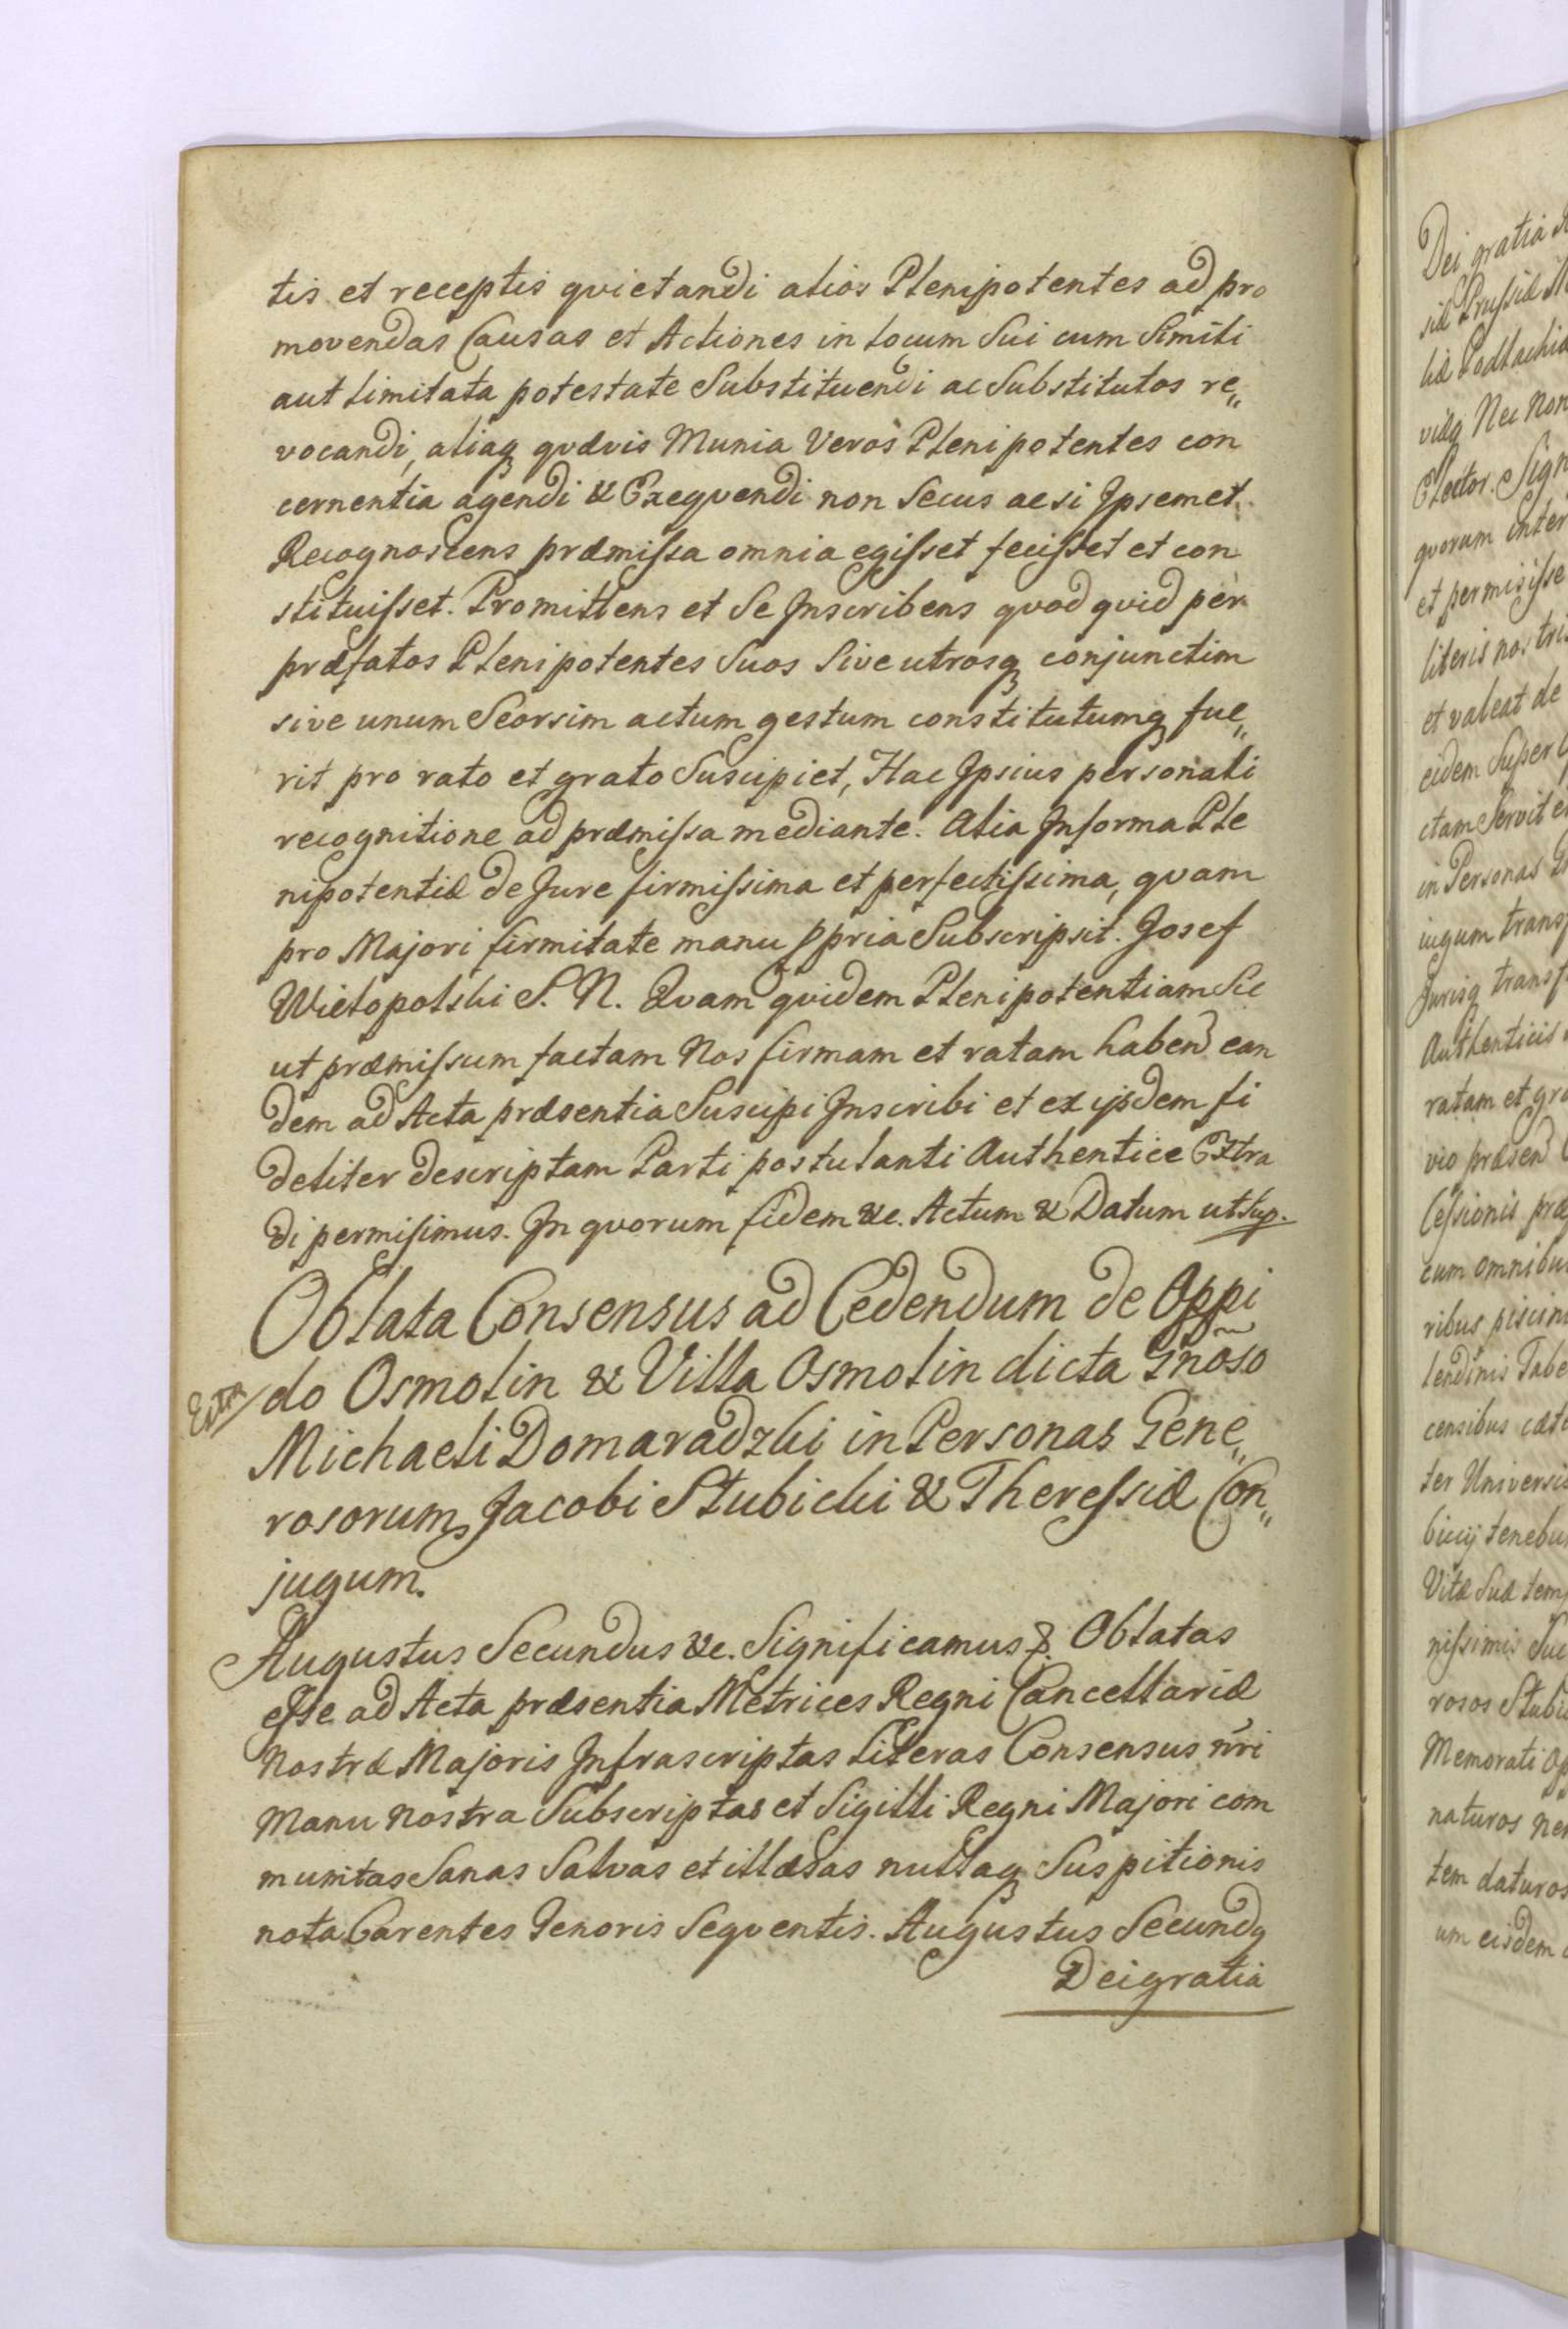 tis et receptis qvietandi alios Plenipotentes ad pro
movendas Causas et Actiones in locum Sui cum Simili
aut limitata potestate Substituendi ac Substitutos re„
vocandi, aliaq qvævis Munia Veros Plenipotentes con
cernentia agendi & Exeqvendi non Secus ac si Ipsemet
Recognoscens præmissa omnia egisset fecisset et con
stituisset. Promittens et Se Inscribens qvod qvid per
præfatos Plenipotentes Suos Sive utrosq conjunctim
sive unum Seorsim actum gestum constitutumq fue„
rit pro rato et grato Suscipiet, Hac Ipsius personali
recognitione ad præmissa mediante. Alia In forma Ple
nipotentiæ de Jure firmissima et perfectissima, qvam
pro Majori firmitate manu ppria Subscripsit. Josef
Wielopolski S. N. Qvam qvidem Plenipotentiam Sic
ut præmissum factam Nos firmam et ratam haben ean
dem ad Acta præsentia Suscipi Inscribi et ex ijsdem fi
deliter descriptam Parti postulanti Authentice Extra
di permisimus. In qvorum fidem &c. Actum & Datum ut Sup.
Oblata Consensus ad Cedendum de Oppi
Extra do Osmolin & Villa Osmolin dicta Gnoso
Michaeli Domaradzki in Personas Gene„
rosorum Jacobi Stubicki & Theressiæ Con„
jugum.
Augustus Secundus &c. Significamus &. Oblatas
esse ad Acta præsentia Metrices Regni Cancellariæ
Nostræ Majoris Infrascriptas Literas Consensus nri
Manu Nostra Subscriptas et Sigilli Regni Majori com
munitas Sanas Salvas et illæsas nullaq Suspitionis
nota Carentes Tenoris Seqventis. Augustus Secundq
Dei gratia
Dei gratia
Nec Non
Elector. Sign
qvorum inter
et permisisse
literis nostris
et valeat de
eidem Super
in Personas
iugum trans
Jurisq transf
Authenticis
ratam et gra
vio præsen
Cessionis præ
cum omnibus
ribus piscin
censibus cæt
ter Universi
tenebun
Vitæ Suæ tem
nissimis Suc
rosos Stubi
Memorati Op
naturos ne
tem daturos
um eisdem